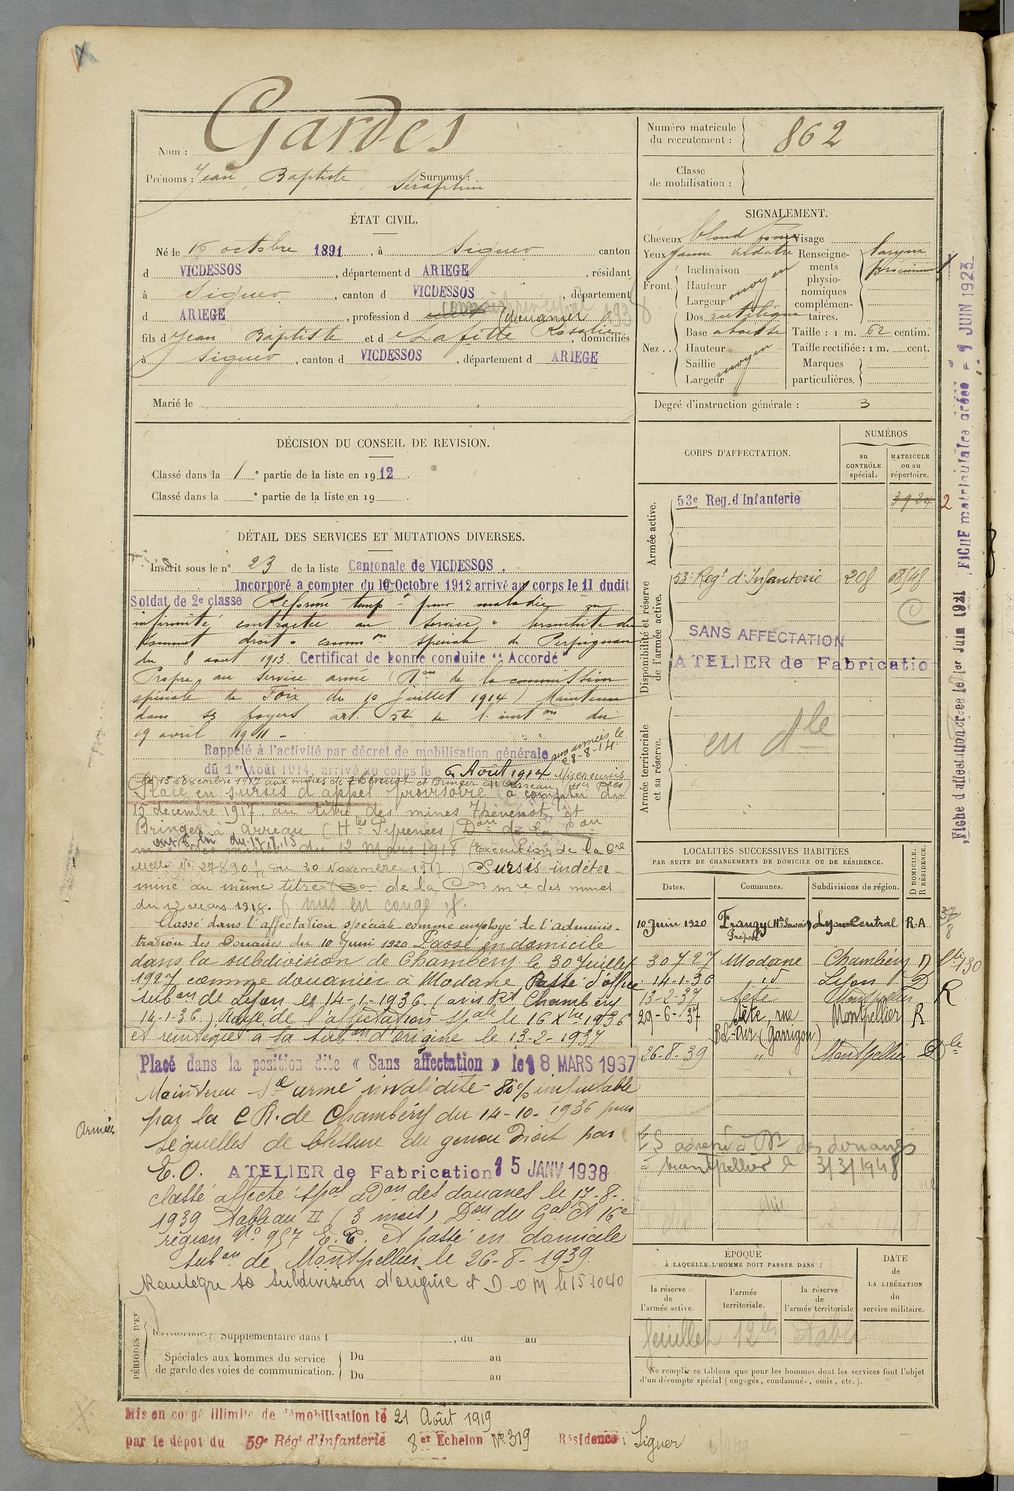 Nom : Gardes
Prénoms : Jean Baptiste Séraphin Surnoms :
ÉTAT CIVIL.
Né le 16 octobre 1891, à Siguer canton
d VICDESSOS, département d ARIEGE, résidant
à Siguer, canton d VICDESSOS, département
d ARIEGE, profession d douanier
fils d Jean Baptiste et d e Lafitte Rosalie, domiciliés
à Siguer, canton d VICDESSOS, département d ARIEGE
Marié le
DÉCISION DU CONSEIL DE REVISION.
Classé dans la 1 e partie de la liste en 1912.
Classé dans la e partie de la liste en 19
DÉTAIL DES SERVICES ET MUTATIONS DIVERSES.
Inscrit sous le n° 23 de la liste Cantonale de VICDESSOS.
Incorporé a compter du 10 Octobre 1912 arrivé au corps le 11 dudit
Soldat de 2e classe Réformé temp re pour maladie ou
infirmité contractée au service
droit comm on spéciale de Perpignan
du 8 aout 1913. Certificat de bonne conduite "Accordé"
Propre au service armé de la commission
spéciale de Foix du 10 juillet 1914 / Maintenu
dans ses foyers art. 52 de l' inst on du
19 avril 1911 -
Rappelé à l'activité par décret de mobilisation générale
du 1er Août 1914, arrivé au corps le 6 Août 1914
aux armées le 28-8-14.
Placé en sursis d'appel provisoire à compter du
15 décembre 1917. au titre des mines Thévenot et
Bringer à Arreau (Htes Pyrénées)
du 12 Mars 1918
du 30 Novembre 1917) Sursis indéter-
miné au même titre de la C on m re des mines
du 12 mars 1918.
Classé dans l'affectation spéciale comme employé de l'adminis-
tration des Douanes du 10 Juin 1920 Passé en domicile
dans la subdivision de Chambéry le 30 Juillet
1927 comme douanier à Modane Passé d'office
sub on de Lyon le 14-1-1936. (avis Rt Chambéry
14-1-36) Rayé de l'affectation sp ale le 16 X bre 1936
et réintégré à sa sub on d'origine le 13-2-1937
Placé dans la position dite « Sans affectation » le 18 MARS 1937
Maintenu S ce armé invalidité
par la C R. de Chambéry du 14-10-1936 pour
séquelles de blessure du genou droit par
E.O. ATELIER de Fabrication 15 JANV 1938
Classé affecté sp al aD on des douanes le 17-8-
1939 Tableau II (3 mois) D on du G al Ct 16e
région N° 987 E.C. et passé en domicile
sub on de Montpellier le 26-8-1939.
Armée
Supplémentaire dans l , du au
Spéciales aux hommes du service
de garde des voies de communication.
Du au
Du au
Mis en congé illimité de démobilisation le 21 Août 1919
par le dépot du 59e Régt d'Infanterie 8er Echelon N° 319 Résidence : Siguer
Numéro matricule
du recrutement : 862
Classe
de mobilisation :
SIGNALEMENT.
Cheveux blond Visage
Yeux jaune
Front. Inclinaison
Hauteur moyen
Largeur
Nez.. Dos rectiligne
Base abaissée
Hauteur moyen
Saillie
Largeur
Renseigne-
ments
physio-
nomiques
complémen-
taires.
larynx
proéminent
Taille : 1 m. 62 centim.
Taille rectifiée : 1 m. cent.
Marques
particulières.
Degré d'instruction générale : 3
CORPS D'AFFECTATION.
NUMÉROS
au
CONTRÔLE
spécial.
MATRICULE
ou au
répertoire.
Armée active.
53e Reg. d'Infanterie 3934 2
Disponibilité et réserve
de l'armée active.
53e Reg t d'Infanterie 208
SANS AFFECTATION
ATELIER de Fabricatio
Armée territoriale
et sa réserve.
en dle
LOCALITÉS SUCCESSIVES HABITÉES
PAR SUITE DE CHANGEMENTS DE DOMICILE OU DE RÉSIDENCE.
Dates. Communes. Subdivisions de région. D DOMICILE. R RÉSIDENCE.
10 Juin 1920 Frangy (Hte Savoie) Lyon Central R.A
30 7 27 Modane Chambéry D
14-1-36 id Lyon D
13-2-37 Sète Montpellier R
29-6-37 Sète, rue Montpellier R
Bel-air (Garrigou)
26-8-39 " Montpellier D
des douanes
à Montpellier le 3/3/1948
ÉPOQUE
À LAQUELLE L'HOMME DOIT PASSER DANS :
la réserve
de
l'armée active.
l'armée
territoriale.
la réserve
de
l'armée territoriale
DATE
de
LA LIBÉRATION
du
service militaire.
Ne remplir ce tableau que pour les hommes dont les services font l'objet
d'un décompte spécial (engagés, condamnés, omis, etc.).
Fiche d'affectation créée le 1er Juin 1921 FICHE matriculaire créée = 1 JUIN 1923